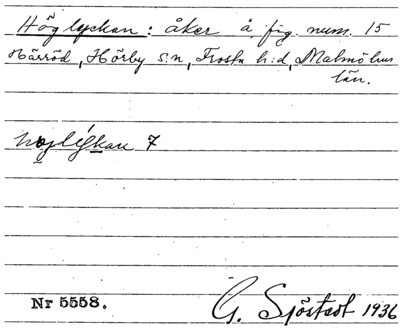 Höglyckan: åker å fig. num. 15
Härröd, Hörby s:n, Frosta h:d, Malmöhus
län.
7
Nr 5558.
G. Sjöstedt 1936